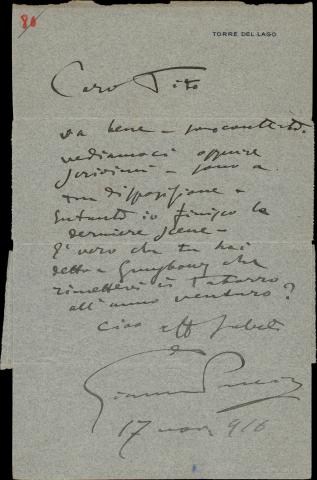 86
TORRE DEL LAGO
Caro Tito
va bene - sono contento.
vediamoci oppure
scrivimi - sono a
tua disposizione -
Intanto io finisco le
derniere scene -
E' vero che tu hai
detto a che
rimettevi il Tabarro
all'anno venturo?
Ciao aff saluti
Giacomo Puccini
17 nov 916